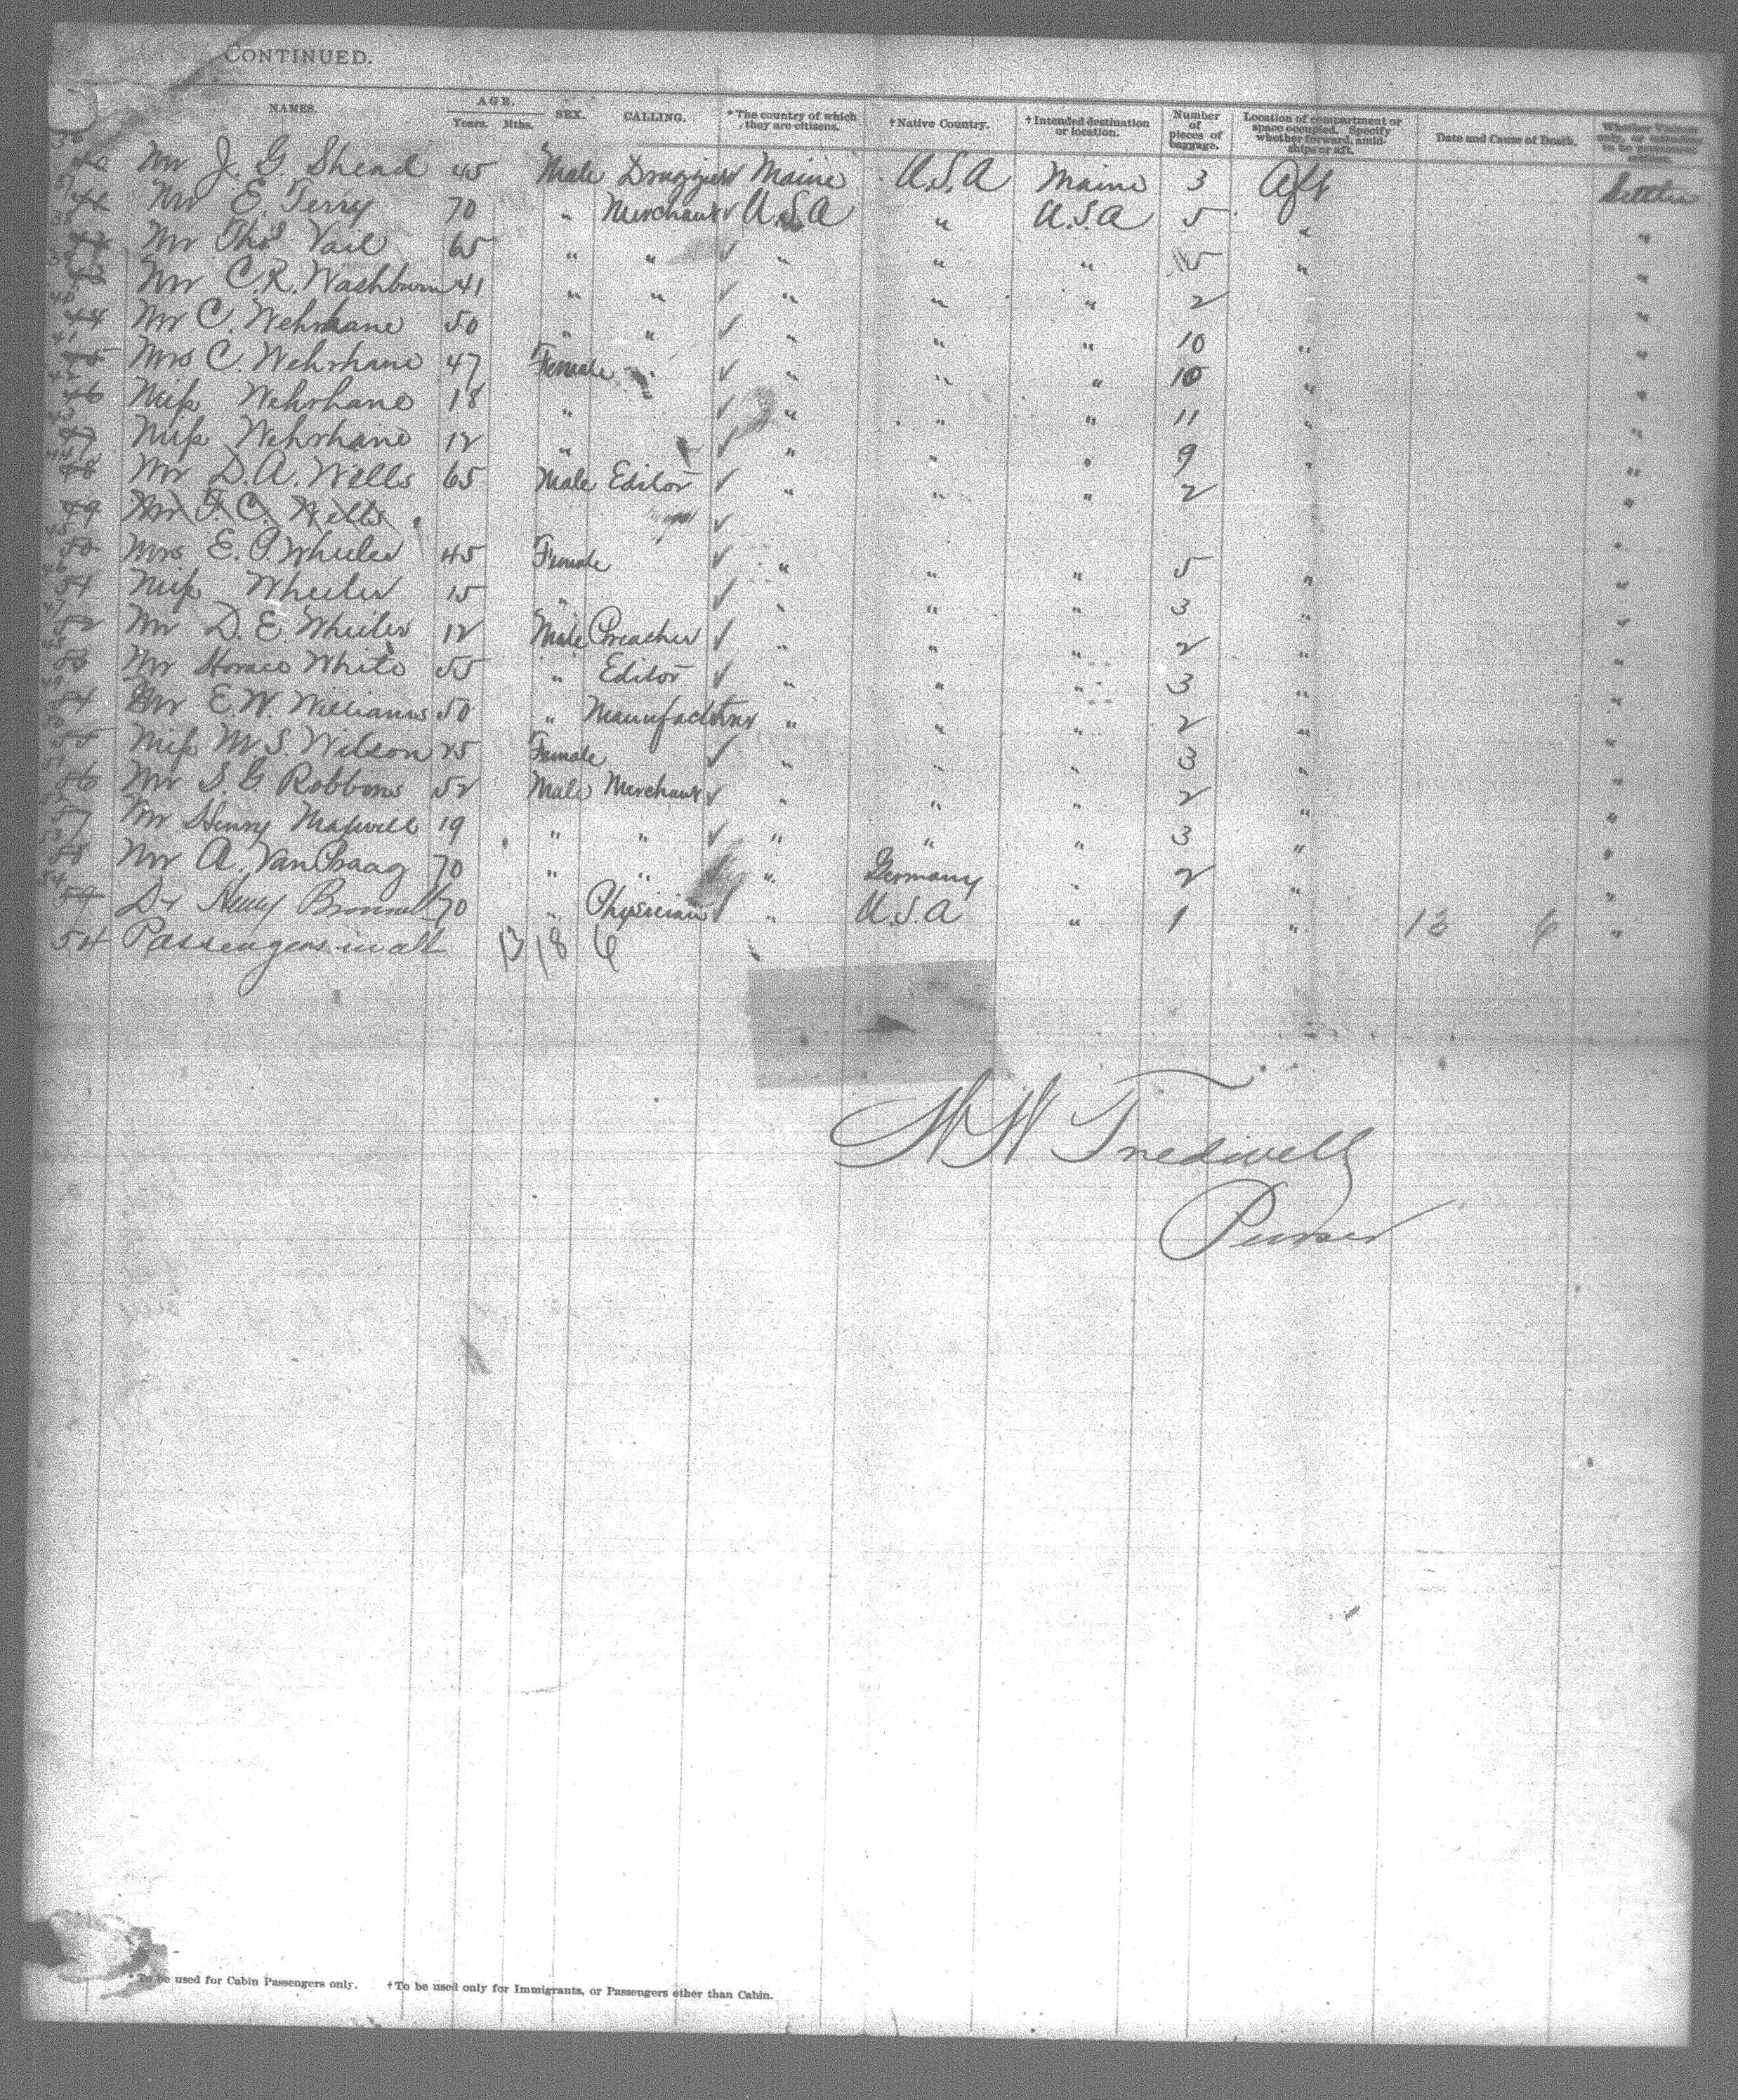 CONTINUED.
NAMES. AGE. Years. Mths. SEX. CALLING. * The country of which they are citizens. † Native Country. † Intended destination or location. Number of pieces of baggage. Location of compartment or space occupied. Specify whether forward, amidships or aft. Date and Cause of Death.
36 Mr J. G. Shead 45 Male Druggist ✓ Maine U.S.A Maine 3 Aft Settler
37 Mr E. Terry 70 " Merchant ✓ U.S.A " U.S.A 5 " "
38 Mr Thos Vail 65 " " ✓ " " " 5 " "
39 Mr C. R. Washburn 41 " " ✓ " " " 2 "
40 44 Mr C. Wehrhane 50 " " ✓ " " " 10 " "
41 45 Mrs C. Wehrhane 47 Female ✓ " " " 10 " "
42 46 Miss Wehrhane 18 " ✓ " " " 11 " "
43 47 Miss Wehrhane 12 " ✓ " " " 9 " "
44 48 Mr D. A. Wells 65 Male Editor ✓ " " " 2 "
49 Mr F. C. Wells ✓
45 50 Mrs E. P. Wheeler 45 Female ✓ " " " 5 " "
46 51 Miss Wheeler 15 " ✓ " " " 3 " "
47 52 Mr D. E. Wheeler 12 Male Preacher ✓ " " " 2 " "
48 53 Mr Horace White 55 " Editor ✓ " " " 3 " "
49 54 Mr E. W. Williams 50 " Manufacturer " " " 2 " "
50 55 Miss M. S. Wilson 25 Female ✓ " " " 3 " "
51 56 Mr S. G. Robbins 52 Male Merchant ✓ " " " 2 " "
52 57 Mr Henry Maxwell 19 " " ✓ " " 3 " "
53 58 Mr A. Van Praag 70 " " ✓ " Germany " 2 " "
54 59 Dr Henry 70 " Physician ✓ " U.S.A " 1 " 13 6 "
54 Passengers in all 13 18 6
W W Tredwell
Purser
* To be used for Cabin Passengers only. † To be used only for Immigrants, or Passengers other than Cabin.